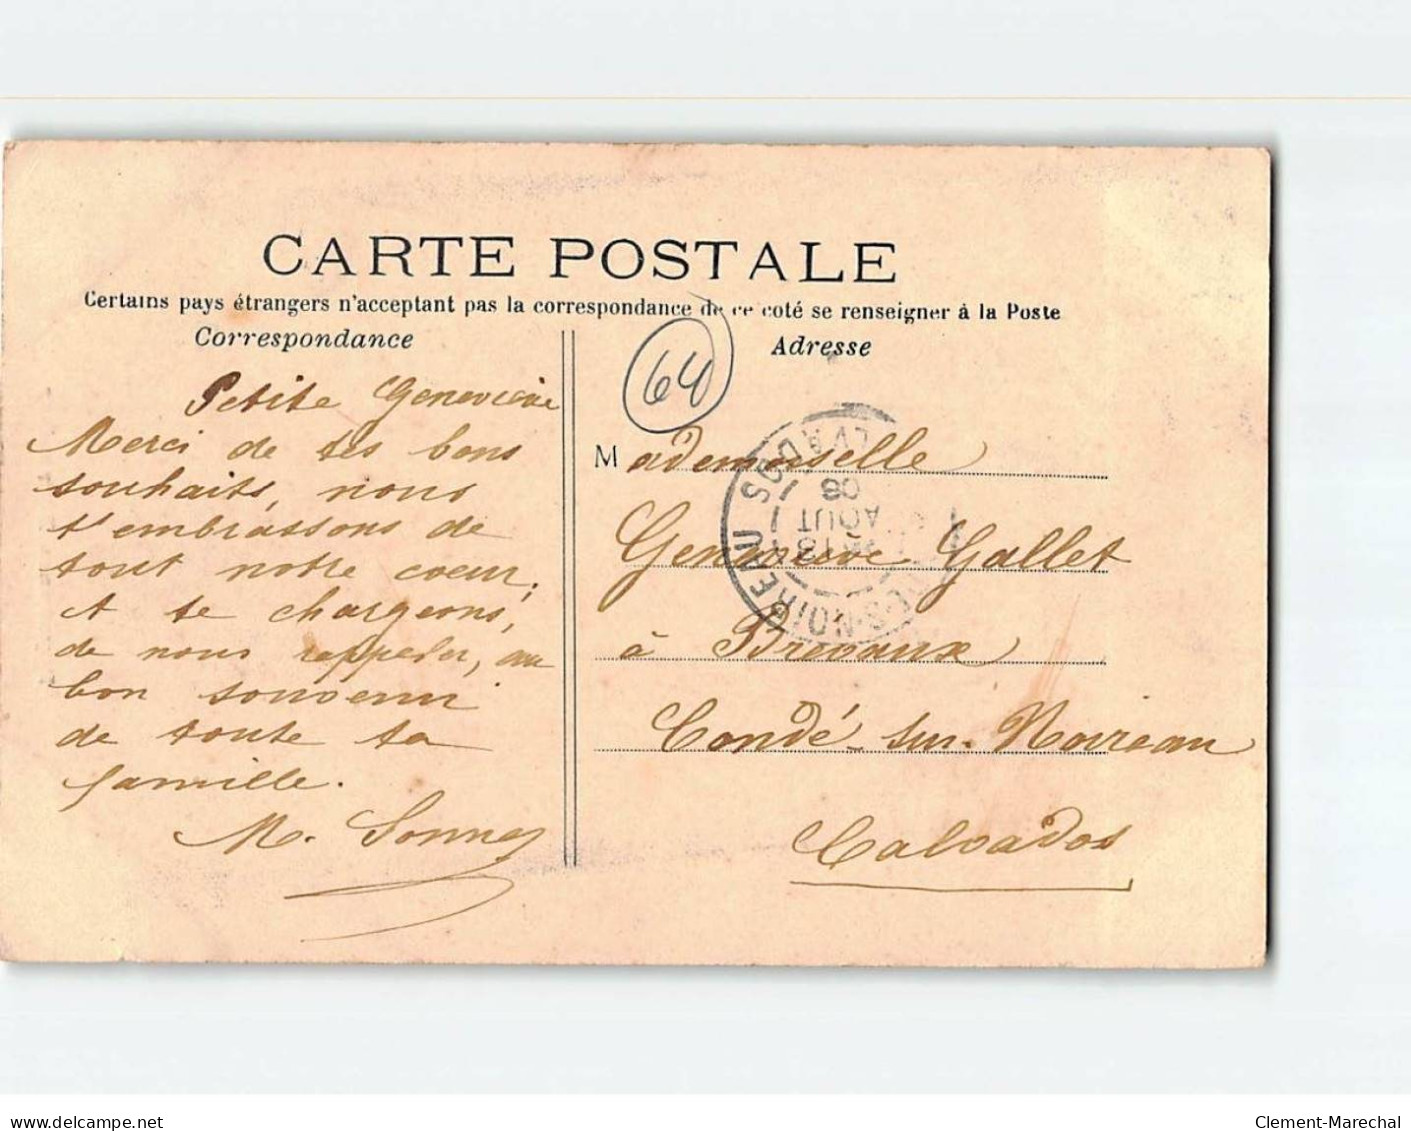 CARTE POSTALE
Certains pays étrangers n'acceptant pas la correspondance de ce coté se renseigner à la Poste
Correspondance
Petite Geneviève
Merci de tes bons
souhaits, nous
t'embrassons de
tout notre coeur,
et te chargeons,
de nous rappeler, au
bon souvenir
de toute ta
famille.
M. Sonney
64
Adresse
Mademoiselle
Geneviève Gallet
à Brevaux
Condé sur Noireau
Calvados
CALVADOS
13
AOUT
08
S-NOIREAU
www.delcampe.net
Clement-Marechal